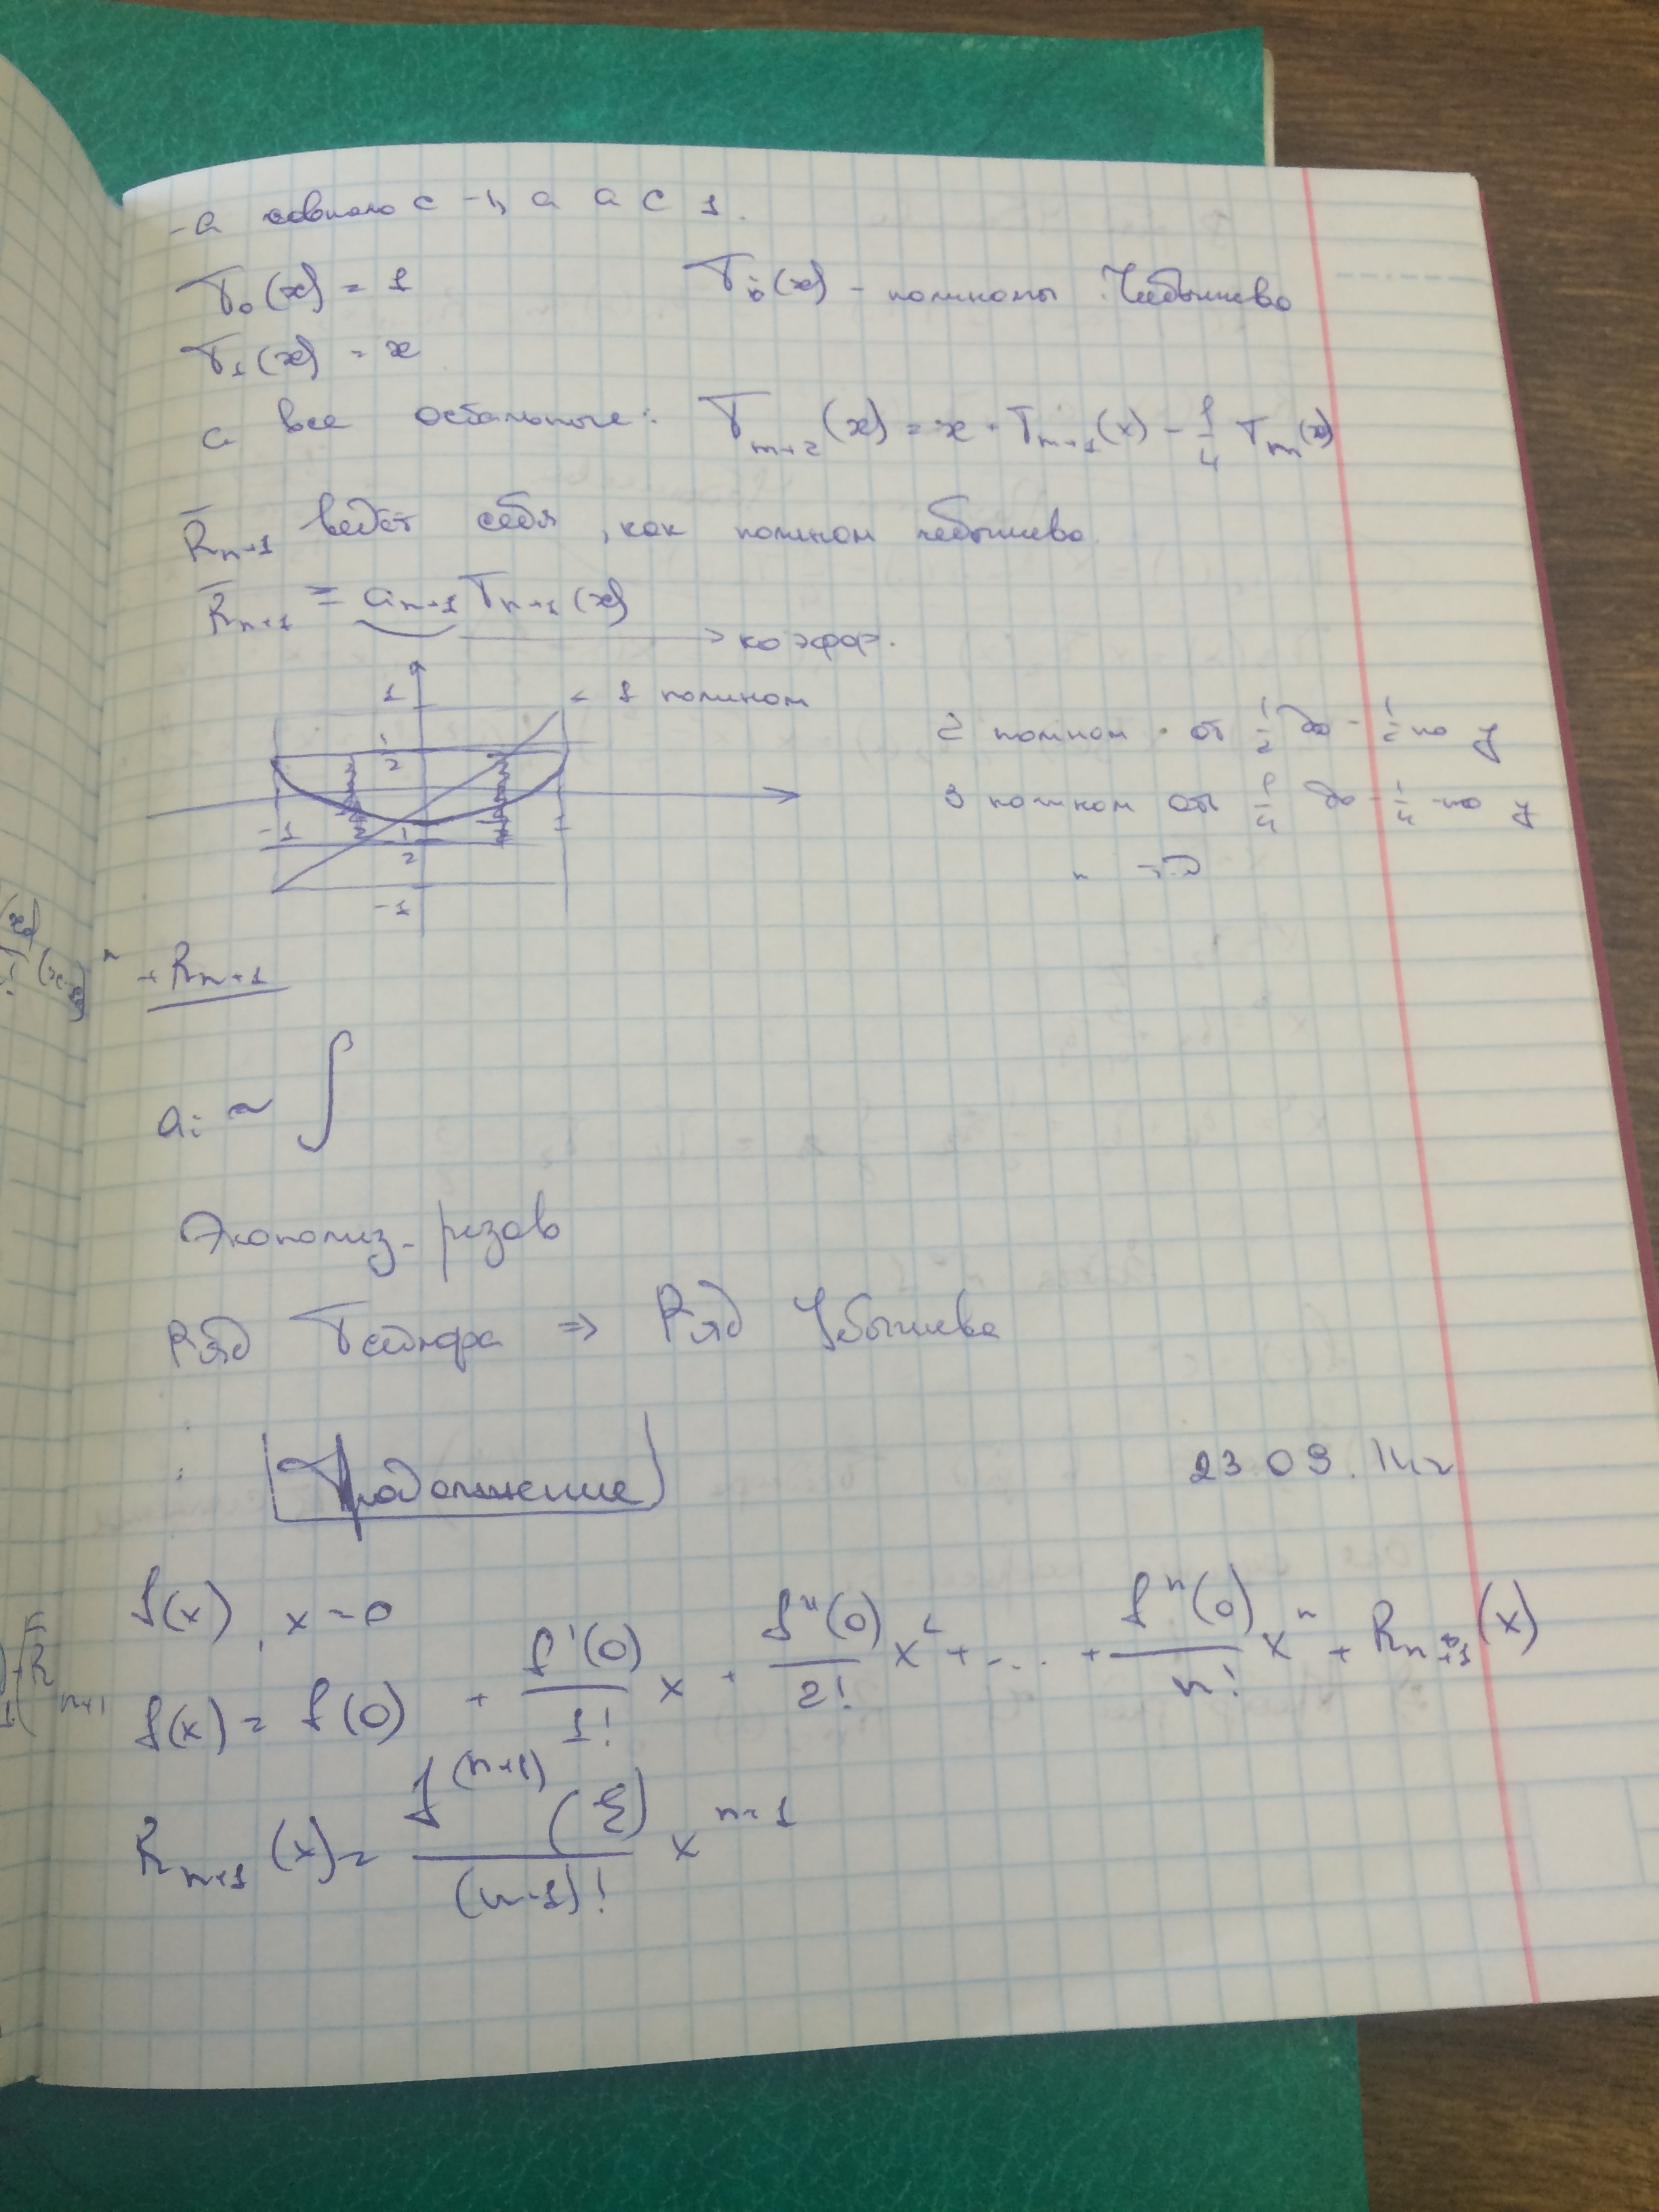 -а совпало с -1, а а с 1.
T₀(x) = 1
Tᵢ(x) - полиномы Чебышева
T₁(x) = x
а все остальные: Tₘ₊₂(x) = x · Tₘ₊₁(x) - 1/4 Tₘ(x)
R̄ₙ₊₁ ведёт себя, как полином чебышева.
R̄ₙ₊₁ = aₙ₊₁ Tₙ₊₁(x)
→ коэфф.
1
1 полином
1/2
2 полином от 1/2 до -1/2 по y
3 полином от 1/4 до -1/4 по y
-1
1
-1/2
-1
+ Rₙ₊₁
aᵢ ~ ∫
Экономиз. рядов
Ряд Тейлора ⇒ Ряд Чбышева
Продолжение
23.09.14г
f(x), x = 0
f(x) = f(0) + f'(0)/1! x + f''(0)/2! x² + ... + fⁿ(0)/n! xⁿ + Rₙ₊₁(x)
Rₙ₊₁(x) = f⁽ⁿ⁺¹⁾(ξ)/(n+1)! xⁿ⁺¹